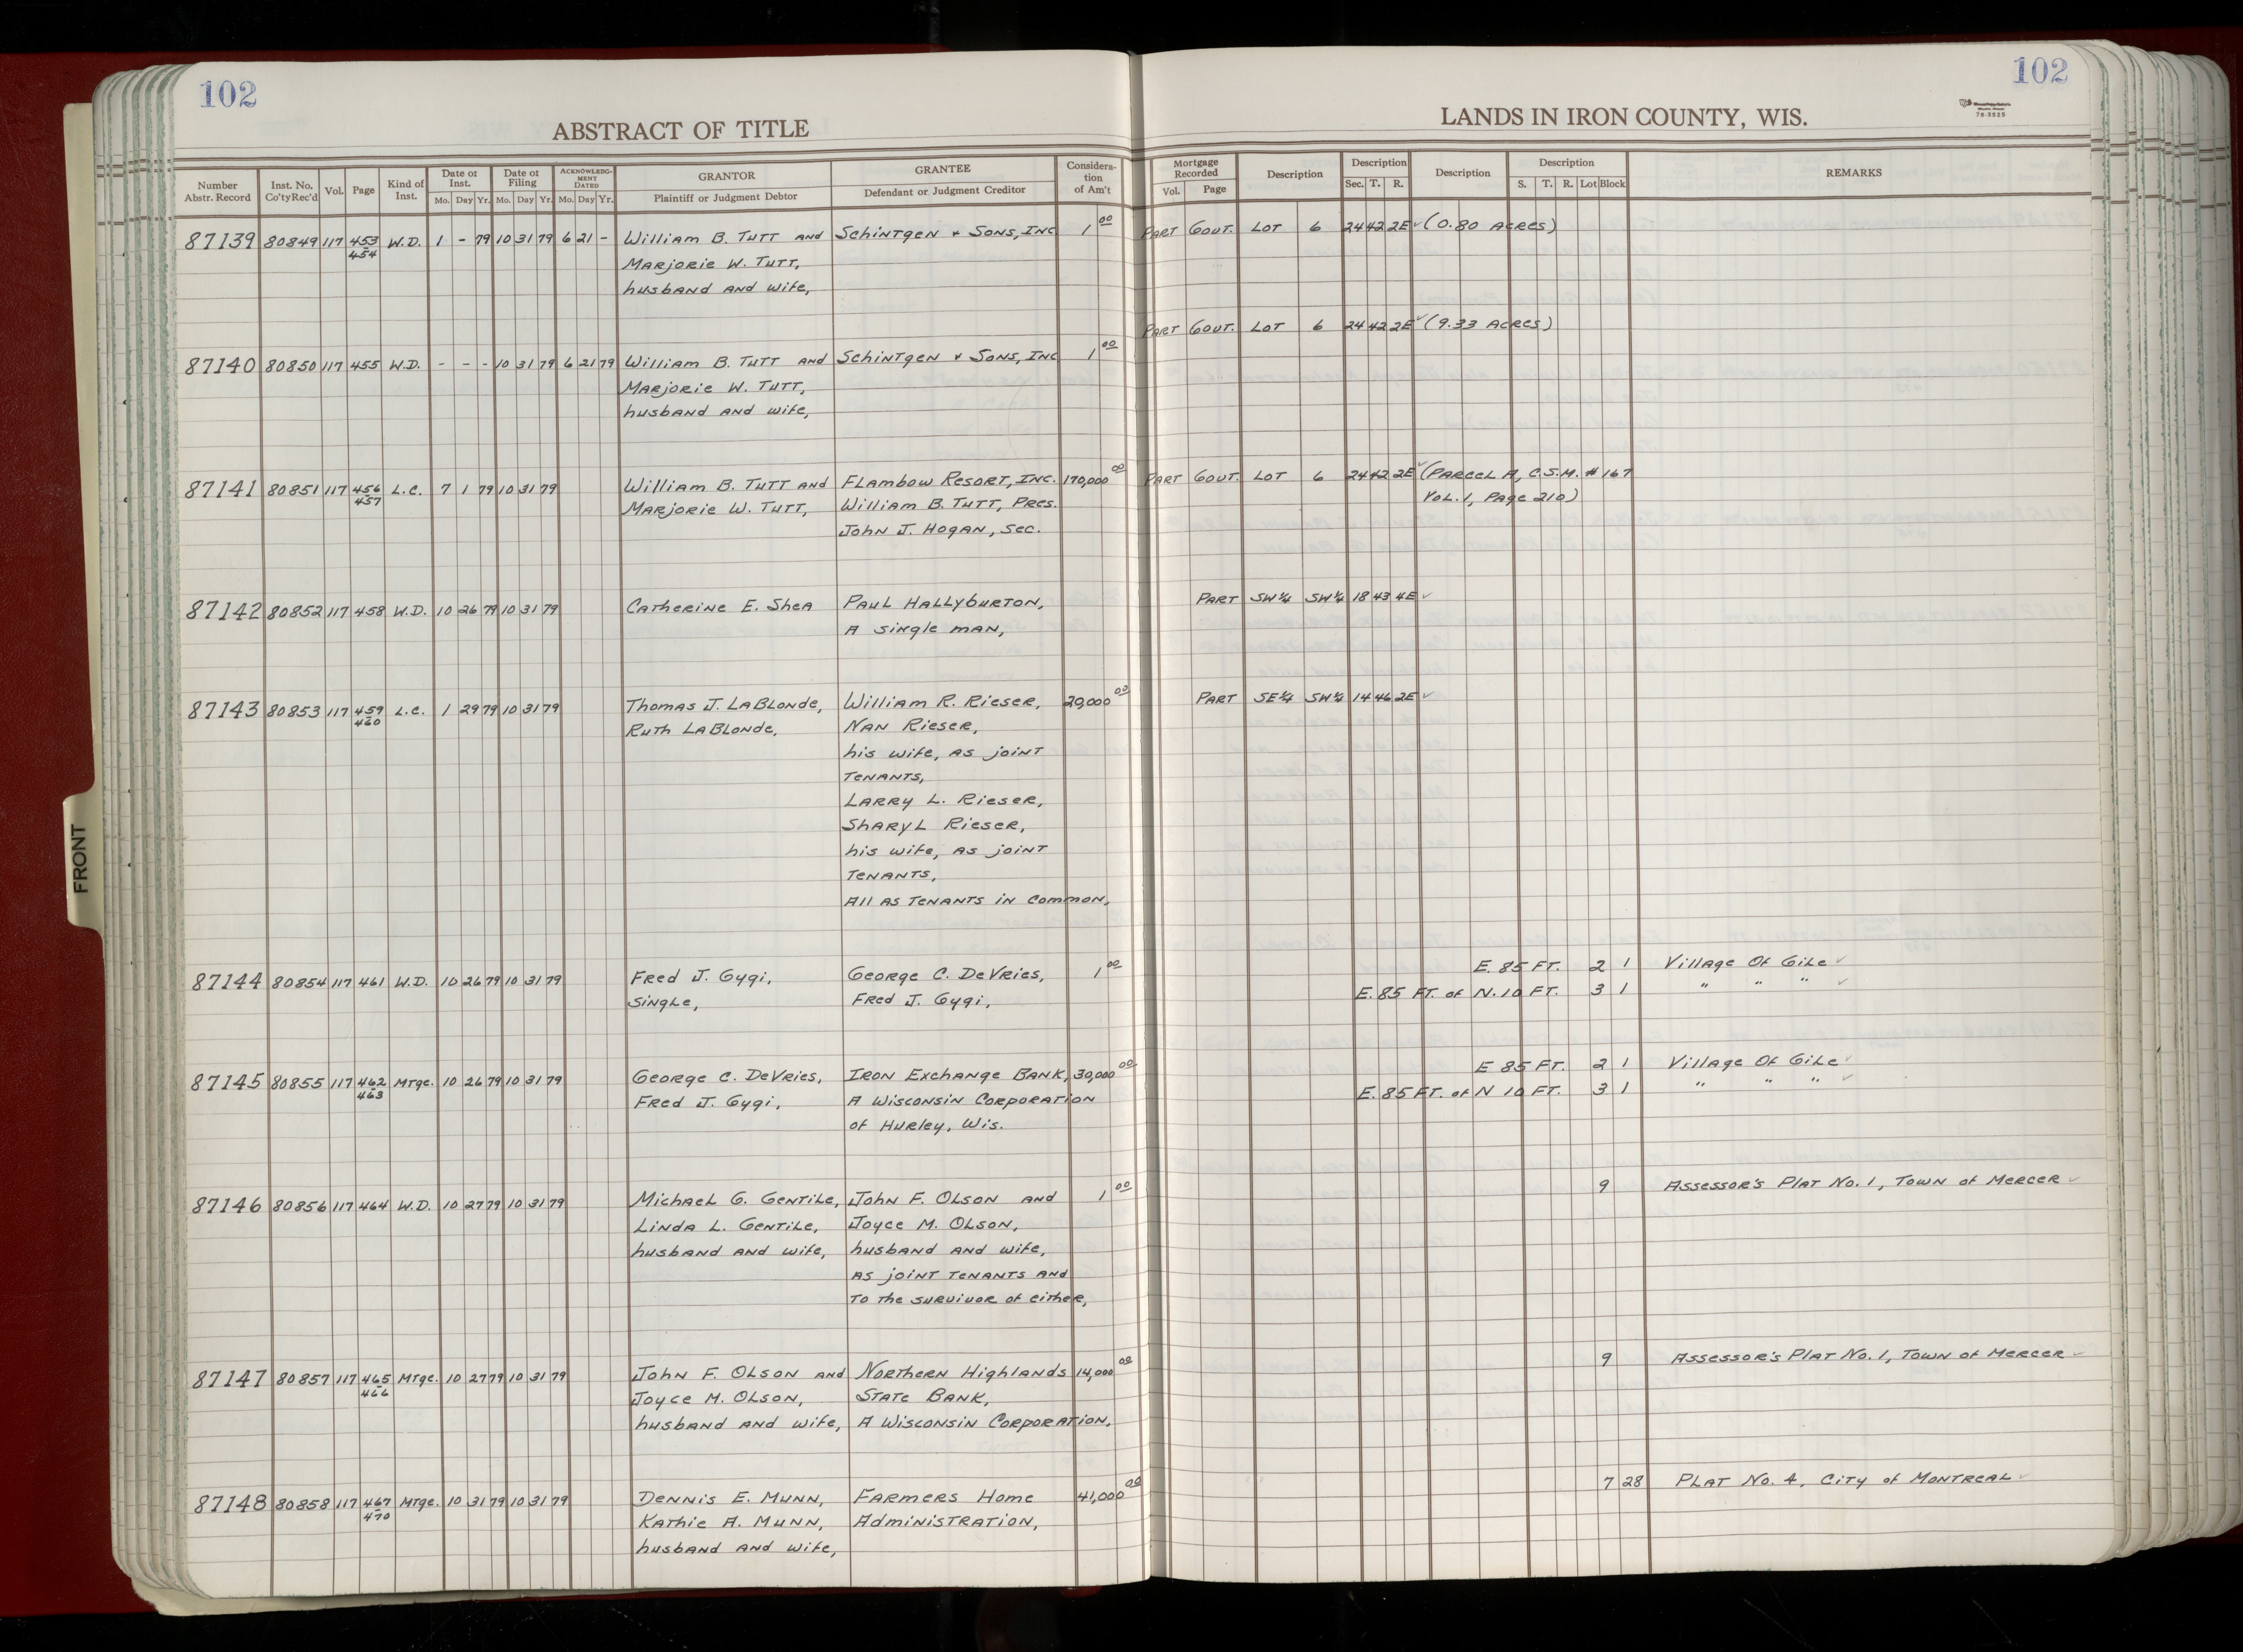 102
102
ABSTRACT OF TITLE
LANDS IN IRON COUNTY, WIS.
78-3525
Number Abstr. Record | Inst. No. Co'ty Rec'd | Vol. | Page | Kind of Inst. | Date of Inst. Mo. Day Yr. | Date of Filing Mo. Day Yr. | ACKNOWLEDGMENT DATED Mo. Day Yr. | GRANTOR Plaintiff or Judgment Debtor | GRANTEE Defendant or Judgment Creditor | Consideration of Am't | Mortgage Recorded Vol. Page | Description | Description Sec. T. R. | Description | Description S. T. R. Lot Block | REMARKS
87139 80849 117 453 W.D. 1 - 79 10 31 79 6 21 - William B. Tutt and Schintgen & Sons, Inc 1 00 Part Gout. Lot 6 24 42 2E ✓ (0.80 Acres)
454 Marjorie W. Tutt,
husband and wife,
Part Gout. Lot 6 24 42 2E ✓ (9.33 Acres)
87140 80850 117 455 W.D. - - - 10 31 79 6 21 79 William B. Tutt and Schintgen & Sons, Inc 1 00
Marjorie W. Tutt,
husband and wife,
87141 80851 117 456 L.C. 7 1 79 10 31 79 William B. Tutt and Flambow Resort, Inc. 170,000 00 Part Gout. Lot 6 24 42 2E ✓ (Parcel A, C.S.M. #167
457 Marjorie W. Tutt, William B. Tutt, Pres. Vol. 1, Page 210)
John J. Hogan, Sec.
87142 80852 117 458 W.D. 10 26 79 10 31 79 Catherine E. Shea Paul Hallyburton, Part SW¼ SW¼ 18 43 4E ✓
A single man,
87143 80853 117 459 L.C. 1 29 79 10 31 79 Thomas J. LaBlonde, William R. Rieser, 20,000 00 Part SE¼ SW¼ 14 46 2E ✓
460 Ruth LaBlonde, Nan Rieser,
his wife, as joint
Tenants,
Larry L. Rieser,
Sharyl Rieser,
his wife, as joint
Tenants,
All as Tenants in Common,
87144 80854 117 461 W.D. 10 26 79 10 31 79 Fred J. Gygi, George C. DeVries, 1 00 E. 85 FT. 2 1 Village Of Gile ✓
Single, Fred J. Gygi, E. 85 FT. of N. 10 FT. 3 1 " " " ✓
87145 80855 117 462 Mtge. 10 26 79 10 31 79 George C. DeVries, Iron Exchange Bank, 30,000 00 E 85 FT. 2 1 Village Of Gile ✓
463 Fred J. Gygi, A Wisconsin Corporation E. 85 FT. of N 10 FT. 3 1 " " " ✓
of Hurley, Wis.
87146 80856 117 464 W.D. 10 27 79 10 31 79 Michael G. Gentile, John F. Olson and 1 00 9 Assessor's Plat No. 1, Town of Mercer ✓
Linda L. Gentile, Joyce M. Olson,
husband and wife, husband and wife,
as joint tenants and
To the survivor of either,
87147 80857 117 465 Mtge. 10 27 79 10 31 79 John F. Olson and Northern Highlands 14,000 00 9 Assessor's Plat No. 1, Town of Mercer ✓
466 Joyce M. Olson, State Bank,
husband and wife, A Wisconsin Corporation,
87148 80858 117 467 Mtge. 10 31 79 10 31 79 Dennis E. Munn, Farmers Home 41,000 00 7 28 Plat No. 4, City of Montreal ✓
470 Kathie A. Munn, Administration,
husband and wife,
FRONT